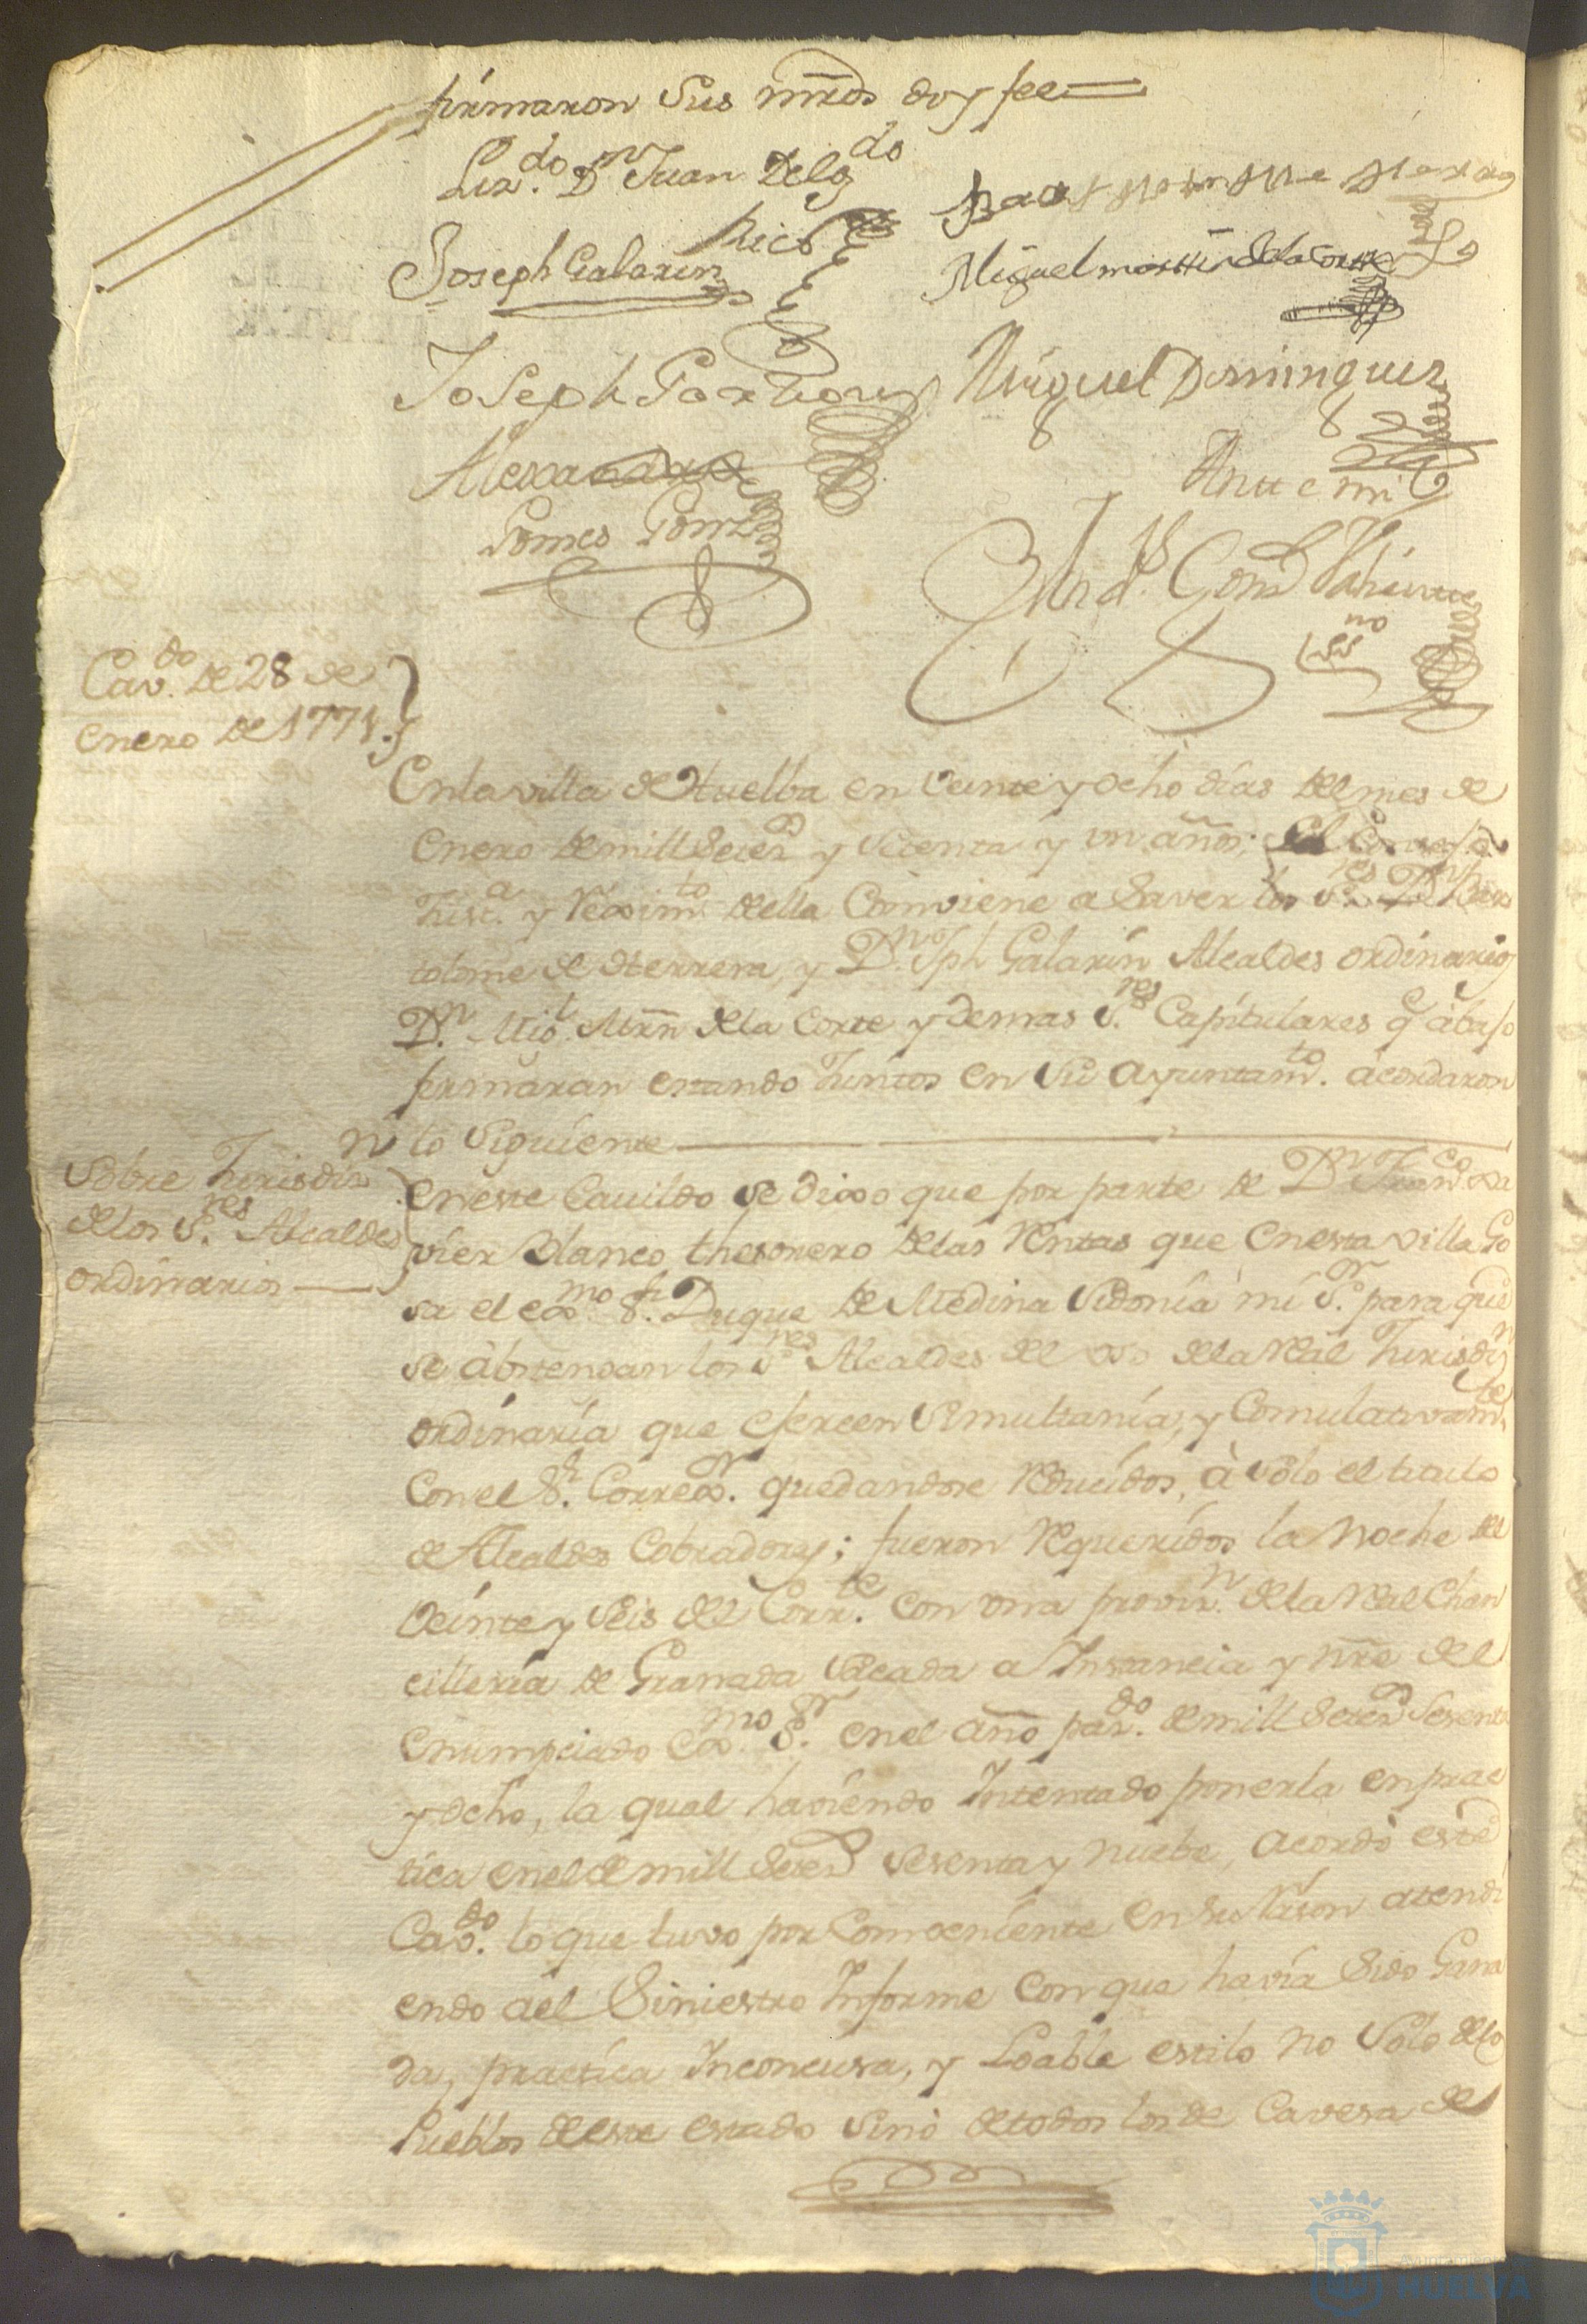 firmaron Sus mrds doy fee
Lizdo. Dn Juan Delgdo
Rico
Joseph Galarin
Miguel martin de la Corte
Joseph
Miguel Dominguez
Alexandro
Gomes Gomz
Ante mi
Andrs Gonz
sno
Cavdo. de 28 de
enero de 1771.
Enla villa de Huelba en Veinte y ocho dias del mes de
Enero de mill Setezs y Setenta y un años; el Consejo
Justa. y Reximto. della Conviene a Saver los Sres. Dn Bar
tolome de Herrera, y Dn. Jph Galarin Alcaldes ordinarios
Dn. Migl. Mrn dela Corte y demas Sres. Capitulares qe abajo
firmaran estando Juntos en Su Ayuntamto. acordaron
lo Siguiente
Sobre Jurisdizn
delos Sres. Alcaldes
ordinarios
En este Cavildo Se dixo que por parte de Dn Franco xa
vier Blanco thesorero delas Rentas que en esta villa Go
sa el exmo. Sr. Duque de Medina Sidonia mi Sor. para que
se abstengan los Sres Alcaldes del uso dela Real Jurisdizn
ordinaria que esercen Simultania, y Comulativamte.
Con el Sr. Corregor. quedandose Reducidos, à solo el titulo
de Alcaldes Cobradores; fueron Requeridos la Noche del
Veinte y Seis del Corrte. Con una provisn. dela Real Chan
cilleria de Granada Sacada a Instancia y nre del
enumpciado Exmo. Sr. en el año pasdo. de mill Setezs Sesenta
y ocho, la qual haviendo Intentado ponerla en prac
tica en el de mill Setezs Sesenta y nuebe, acordò este
Cavdo. lo que tuvo por Comveniente en Su Rason atendi
endo ael Siniestro Informe Con que havia Sido Gana
da, practica Inconcusa, y Loable estilo no Solo delos
Pueblos deeste estado Sinò de todos los de Cavesa de
Ayuntamiento
HUELVA